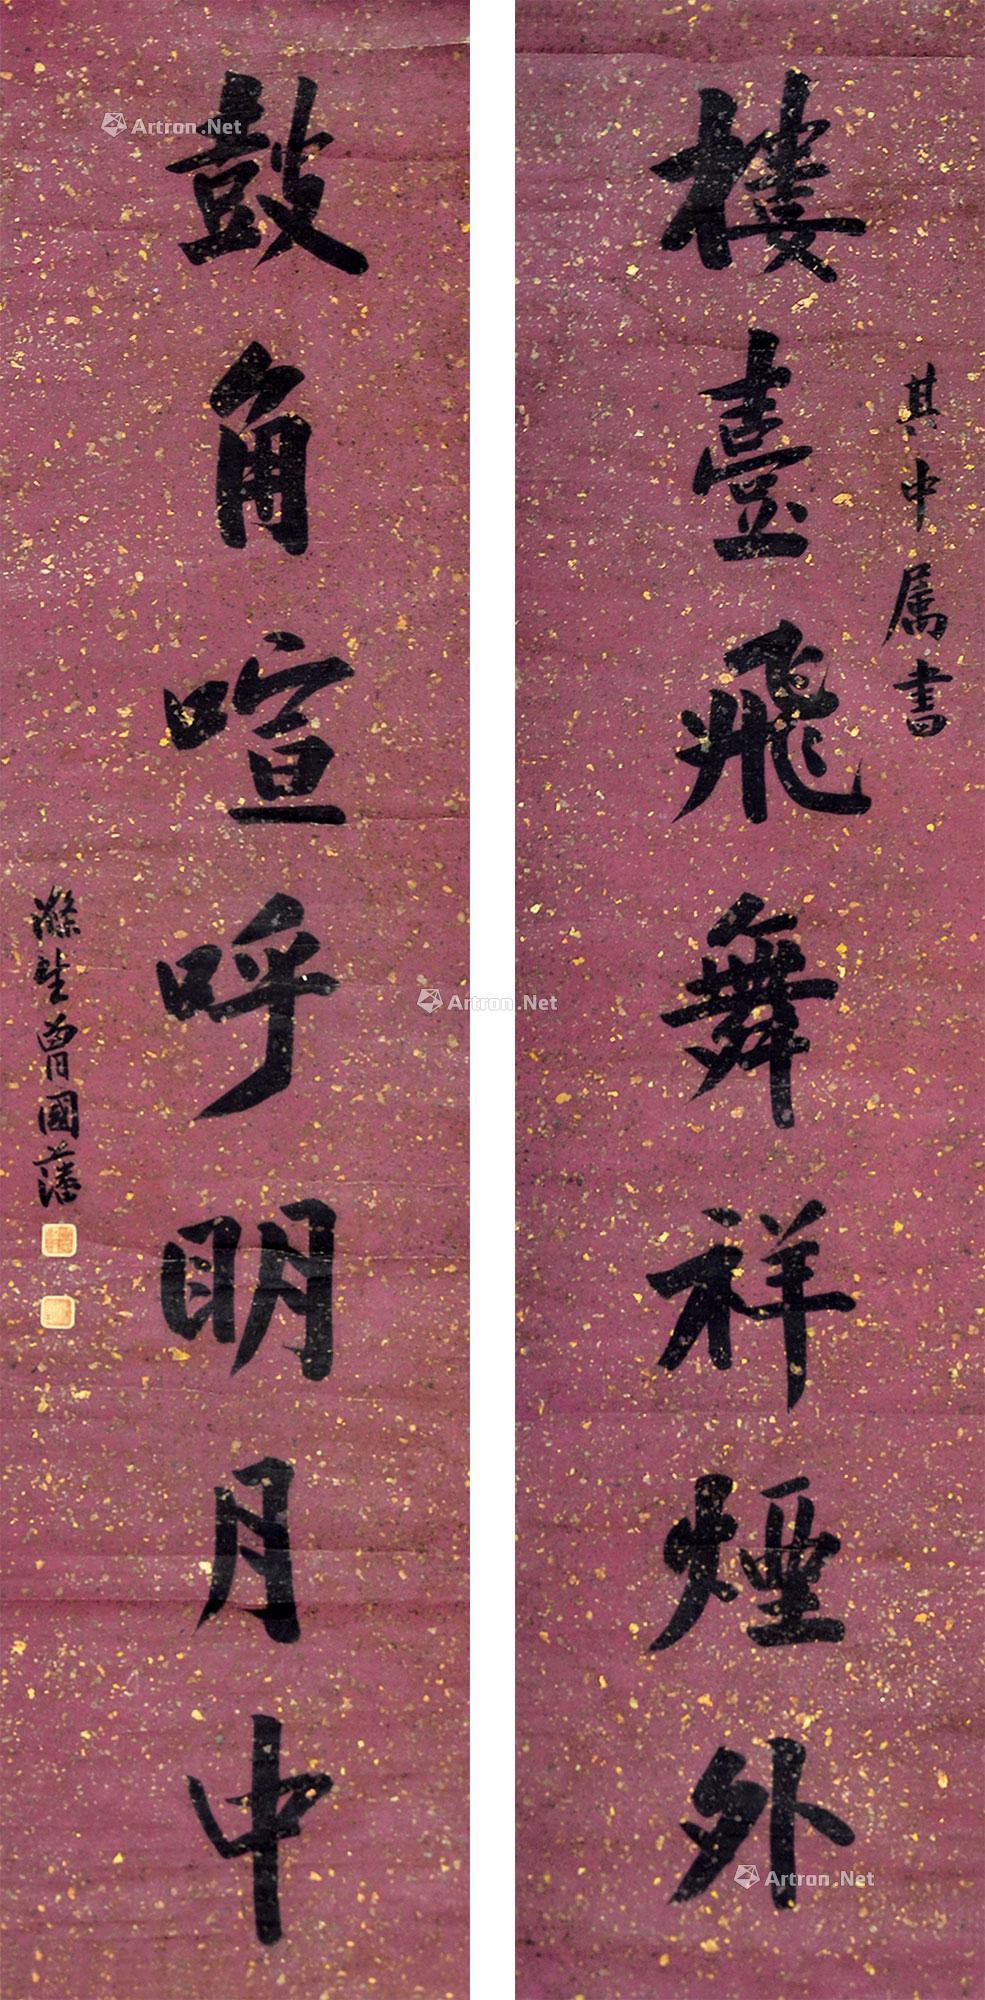 其中属書
樓臺飛舞祥煙外
鼓角喧呼明月中
滌生曾國藩
Artron.Net
Artron.Net
Artron.Net